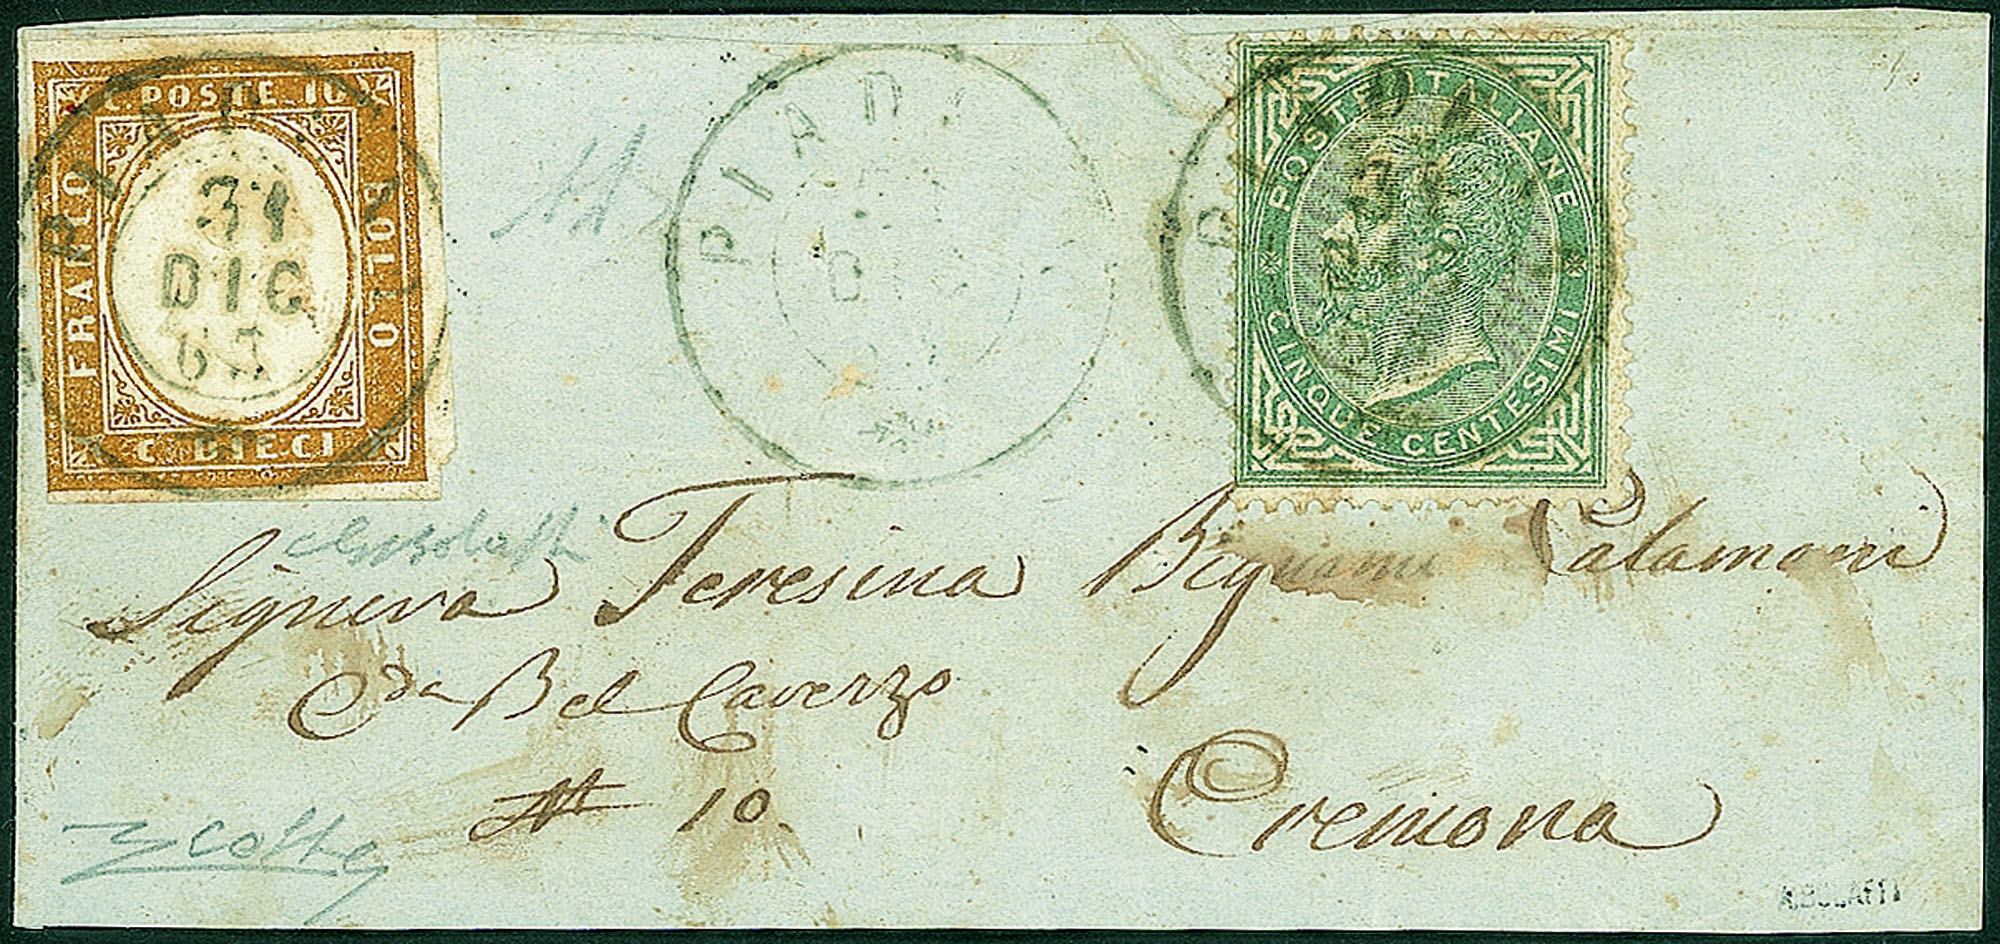 C. POSTE 10
FRANCO
BOLLO
C. DIECI
PIAD
31
DIC
63
PIAD
DIC
POSTE ITALIANE
CINQUE CENTESIMI
Signora Teresina Bignami Calamani
Cda Bel Cavezzo
N 10.
Cremona
A. BOLAFFI